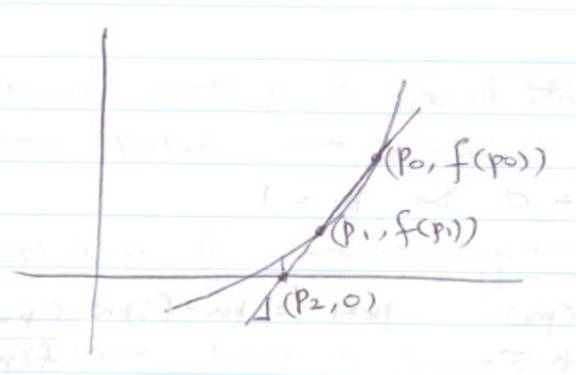 (p0, f(p0))
(p1, f(p1))
(p2, 0)